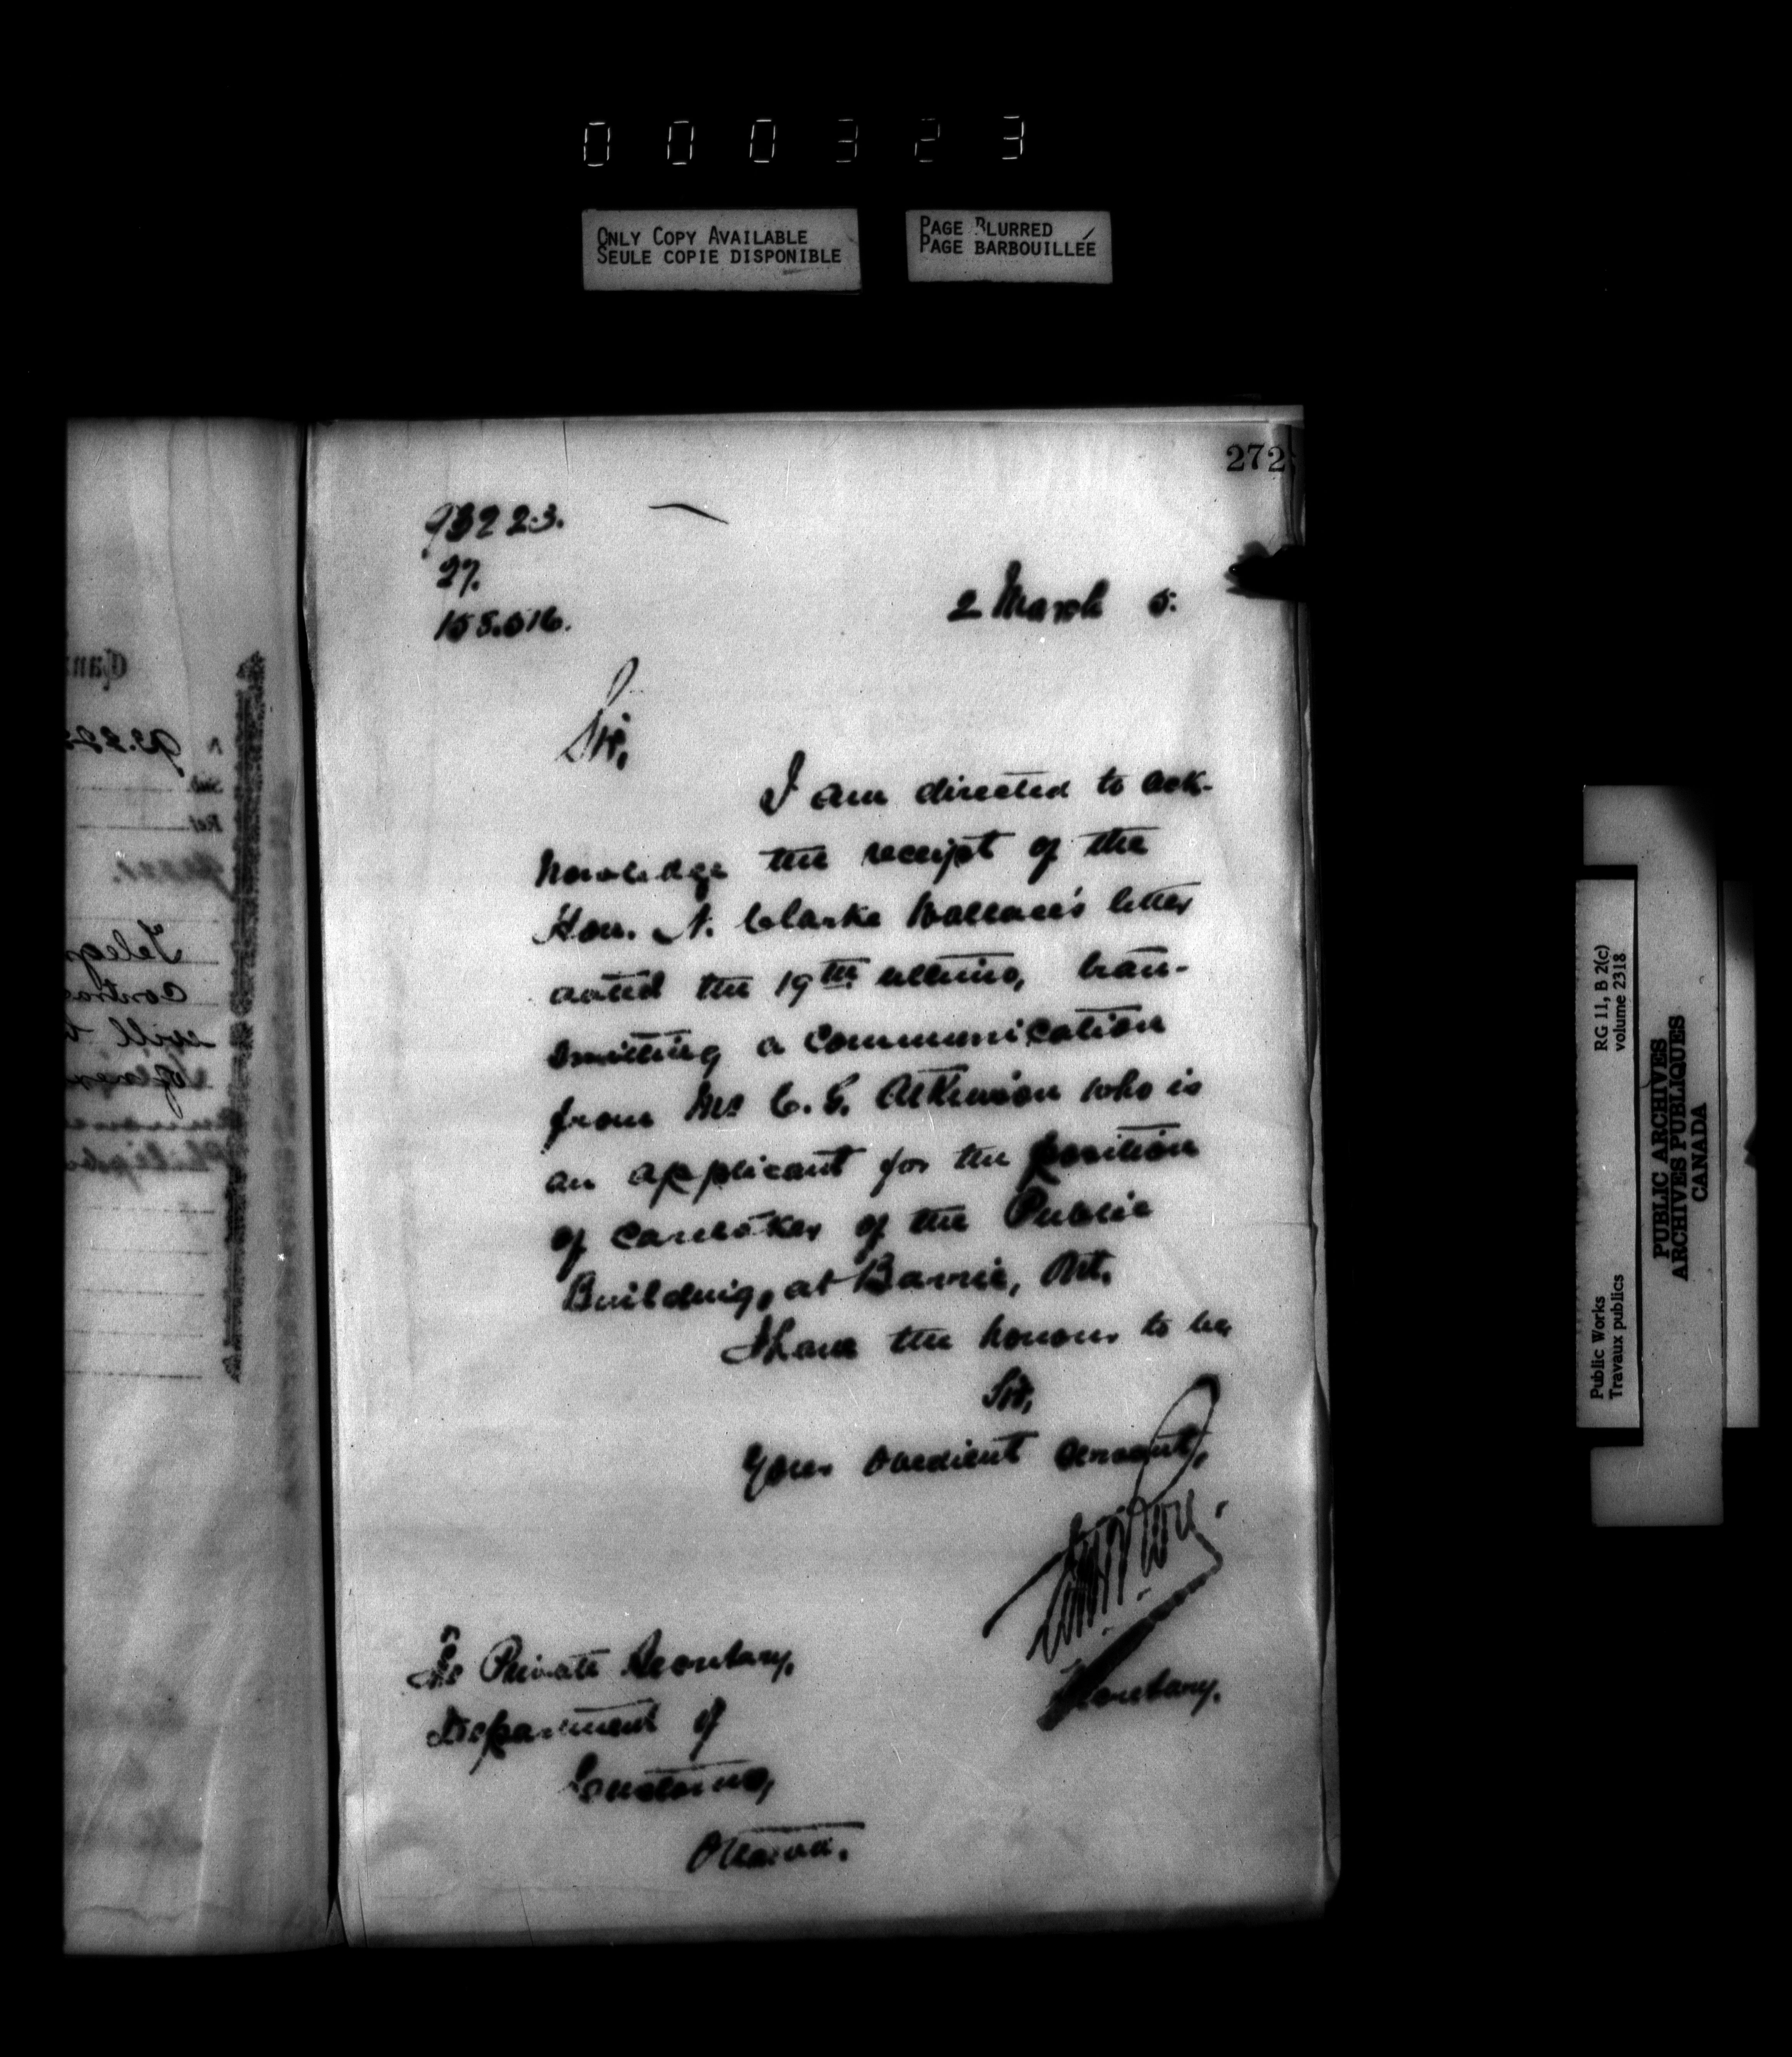 000323
ONLY COPY AVAILABLE
SEULE COPIE DISPONIBLE
PAGE BLURRED
PAGE BARBOUILLÉE
272
93223.
27.
155.516.
2 March 5.
Sir,
I am directed to ack-
nowledge the receipt of the
Hon. N. Clarke Wallace's letter
dated the 19th ultimo, tran-
smitting a communication
from Mr C. G. Atkinson who is
an applicant for the position
of caretaker of the Public
Building, at Barrie, Ont.
I have the honour to be
Sir,
Your obedient servant,
Secretary.
Private Secretary,
Department of
Customs,
Ottawa.
Public Works
Travaux publics
RG 11, B 2(c)
volume 2318
PUBLIC ARCHIVES
ARCHIVES PUBLIQUES
CANADA